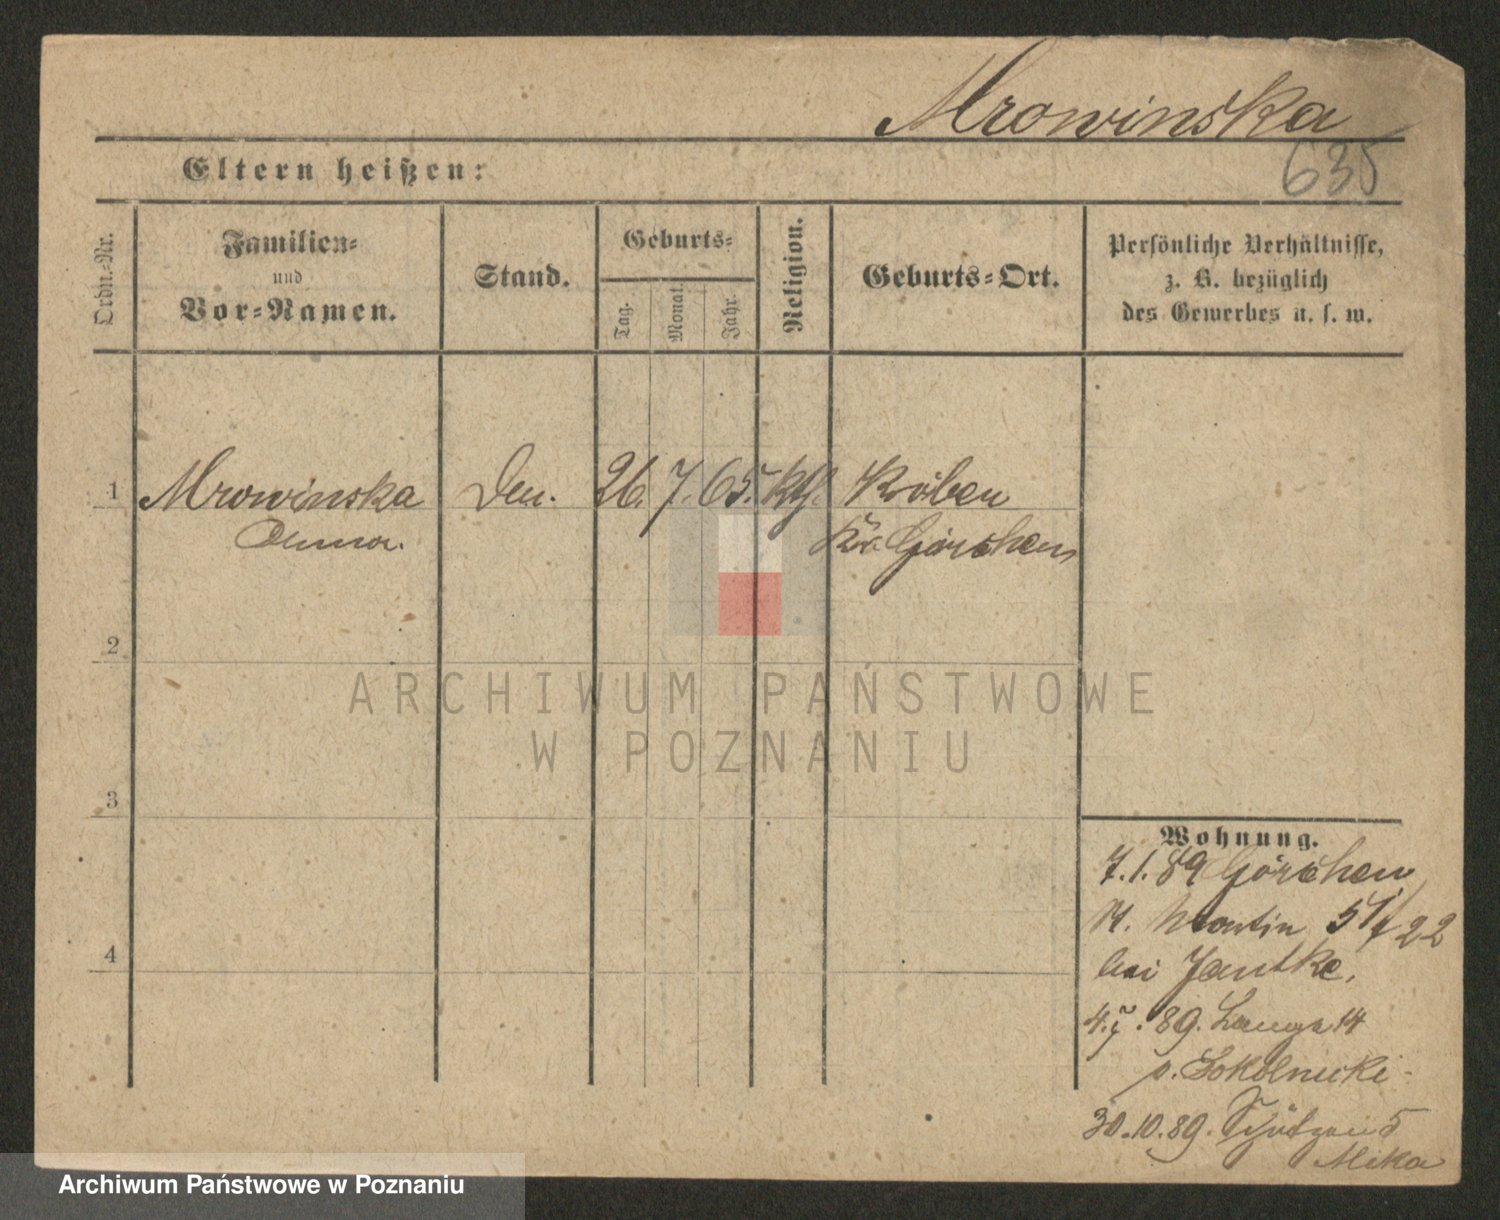 Mrowinska
635
Eltern heißen:
Ordn.-Nr.
Familien-
und
Vor-Namen.
Stand.
Geburts-
Tag.
Monat.
Jahr.
Religion.
Geburts-Ort.
Persönliche Verhältnisse,
z. B. bezüglich
des Gewerbes u. s. w.
1 Mrowinska 26. 7. 65. kth. Kröben
Anna.
Kr. Görchen
2
3
4
Wohnung.
7.1.89 Görchen
St. Martin 57/22
bei Jantke.
4. 89. Lange 14
b. Sokolnicki
30.10.89. Schützen 5
Mika
ARCHIWUM PAŃSTWOWE
W POZNANIU
Archiwum Państwowe w Poznaniu